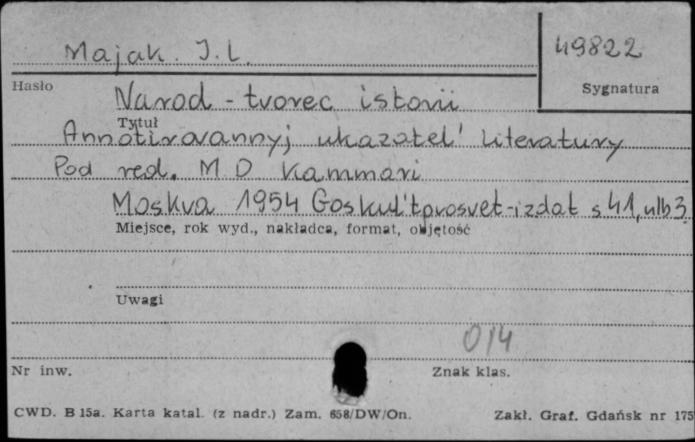 Majak. I. L.
49822
Hasło
Sygnatura
Narod - tvorec istorii
Tytuł
Annotirovannyj ukazatel' literatury
Pod red. M D Kammari
Moskva 1954 Goskul'tprosvet-izdat s 41, nlb 3
Miejsce, rok wyd., nakładca, format, objętość
Uwagi
014
Nr inw.
Znak klas.
CWD. B 15a. Karta katal. (z nadr.) Zam. 658/DW/On.
Zakł. Graf. Gdańsk nr 175